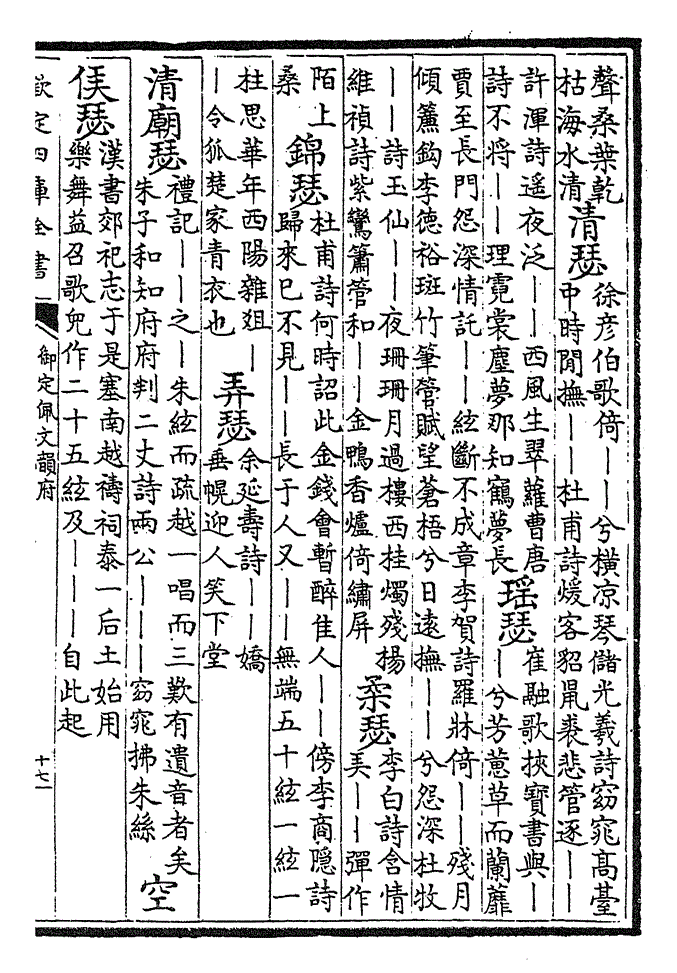 聲桑葉乾
枯海水清
清瑟
徐彦伯歌倚——兮横凉琴儲光羲詩窈窕髙臺
中時閒撫——杜甫詩煖客貂鼠裘悲管逐——
許渾詩遥夜泛——西風生翠蘿曹唐
詩不將——理霓裳塵夢那知鶴夢長
瑶瑟
崔融歌挾寶書與—
—兮芳蕙草而蘭蘼
賈至長門怨深情託——絃斷不成章李賀詩羅牀倚——殘月
傾簾鈎李德裕斑竹筆管賦望蒼梧兮日遠撫——兮怨深杜牧
——詩玉仙——夜珊珊月過樓西桂燭殘楊
維禎詩紫鸞簫管和——金鴨香爐倚繡屏
柔瑟
李白詩含情
美——彈作
陌上
桑
錦瑟
杜甫詩何時詔此金錢會暫醉佳人——傍李商隠詩
歸來已不見——長于人又——無端五十絃一絃一
柱思華年西陽雜俎—
—令狐楚家青衣也
弄瑟
余延壽詩——嬌
垂幌迎人笑下堂
清廟瑟
禮記——之—朱絃而疏越一唱而三歎有遺音者矣
朱子和知府府判二丈詩兩公———窈窕拂朱絲
空
侯瑟
漢書郊祀志于是塞南越禱祠泰一后土始用
樂舞益召歌兒作二十五絃及———自此起
欽定四庫全書
御定佩文韻府
十七